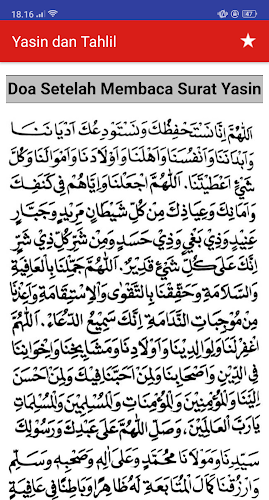 18.16
47
Yasin dan Tahlil
Doa Setelah Membaca Surat Yasin
اَللّٰهُمَّ اِنَّا نَسْتَحْفِظُكَ وَنَسْتَوْدِعُكَ اَدْيَانَنَا
وَاَبْدَانَنَا وَاَنْفُسَنَا وَاَهْلَنَا وَاَوْلَادَنَا وَاَمْوَالَنَا وَكُلَّ
شَيْءٍ اَعْطَيْتَنَا. اَللّٰهُمَّ اجْعَلْنَا وَاِيَّاهُمْ فِيْ كَنَفِكَ
وَاَمَانِكَ وَعِيَاذِكَ مِنْ كُلِّ شَيْطَانٍ مَرِيْدٍ وَجَبَّارٍ
عَنِيْدٍ وَذِيْ بَغْيٍ وَذِيْ حَسَدٍ وَمِنْ شَرِّ كُلِّ ذِيْ شَرٍّ
اِنَّكَ عَلَى كُلِّ شَيْءٍ قَدِيْرٌ. اَللّٰهُمَّ جَمِّلْنَا بِالْعَافِيَةِ
وَالسَّلَامَةِ وَحَقِّقْنَا بِالتَّقْوَى وَالْاِسْتِقَامَةِ وَاَعِذْنَا
مِنْ مُوْجِبَاتِ النَّدَامَةِ اِنَّكَ سَمِيْعُ الدُّعَاءِ. اَللّٰهُمَّ
اغْفِرْ لَنَا وَلِوَالِدِيْنَا وَاَوْلَادِنَا وَمَشَايِخِنَا وَاِخْوَانِنَا
فِي الدِّيْنِ وَاَصْحَابِنَا وَلِمَنْ اَحَبَّنَا فِيْكَ وَلِمَنْ اَحْسَنَ
اِلَيْنَا وَلِلْمُؤْمِنِيْنَ وَالْمُؤْمِنَاتِ وَالْمُسْلِمِيْنَ وَالْمُسْلِمَاتِ
يَارَبَّ الْعَالَمِيْنَ. وَصَلِّ اللّٰهُمَّ عَلَى عَبْدِكَ وَرَسُوْلِكَ
سَيِّدِنَا وَمَوْلَانَا مُحَمَّدٍ وَعَلَى اٰلِهِ وَصَحْبِهِ وَسَلِّمْ
وَارْزُقْنَا كَمَالَ الْمُتَابَعَةِ لَهُ ظَاهِرًا وَبَاطِنًا فِيْ عَافِيَةٍ